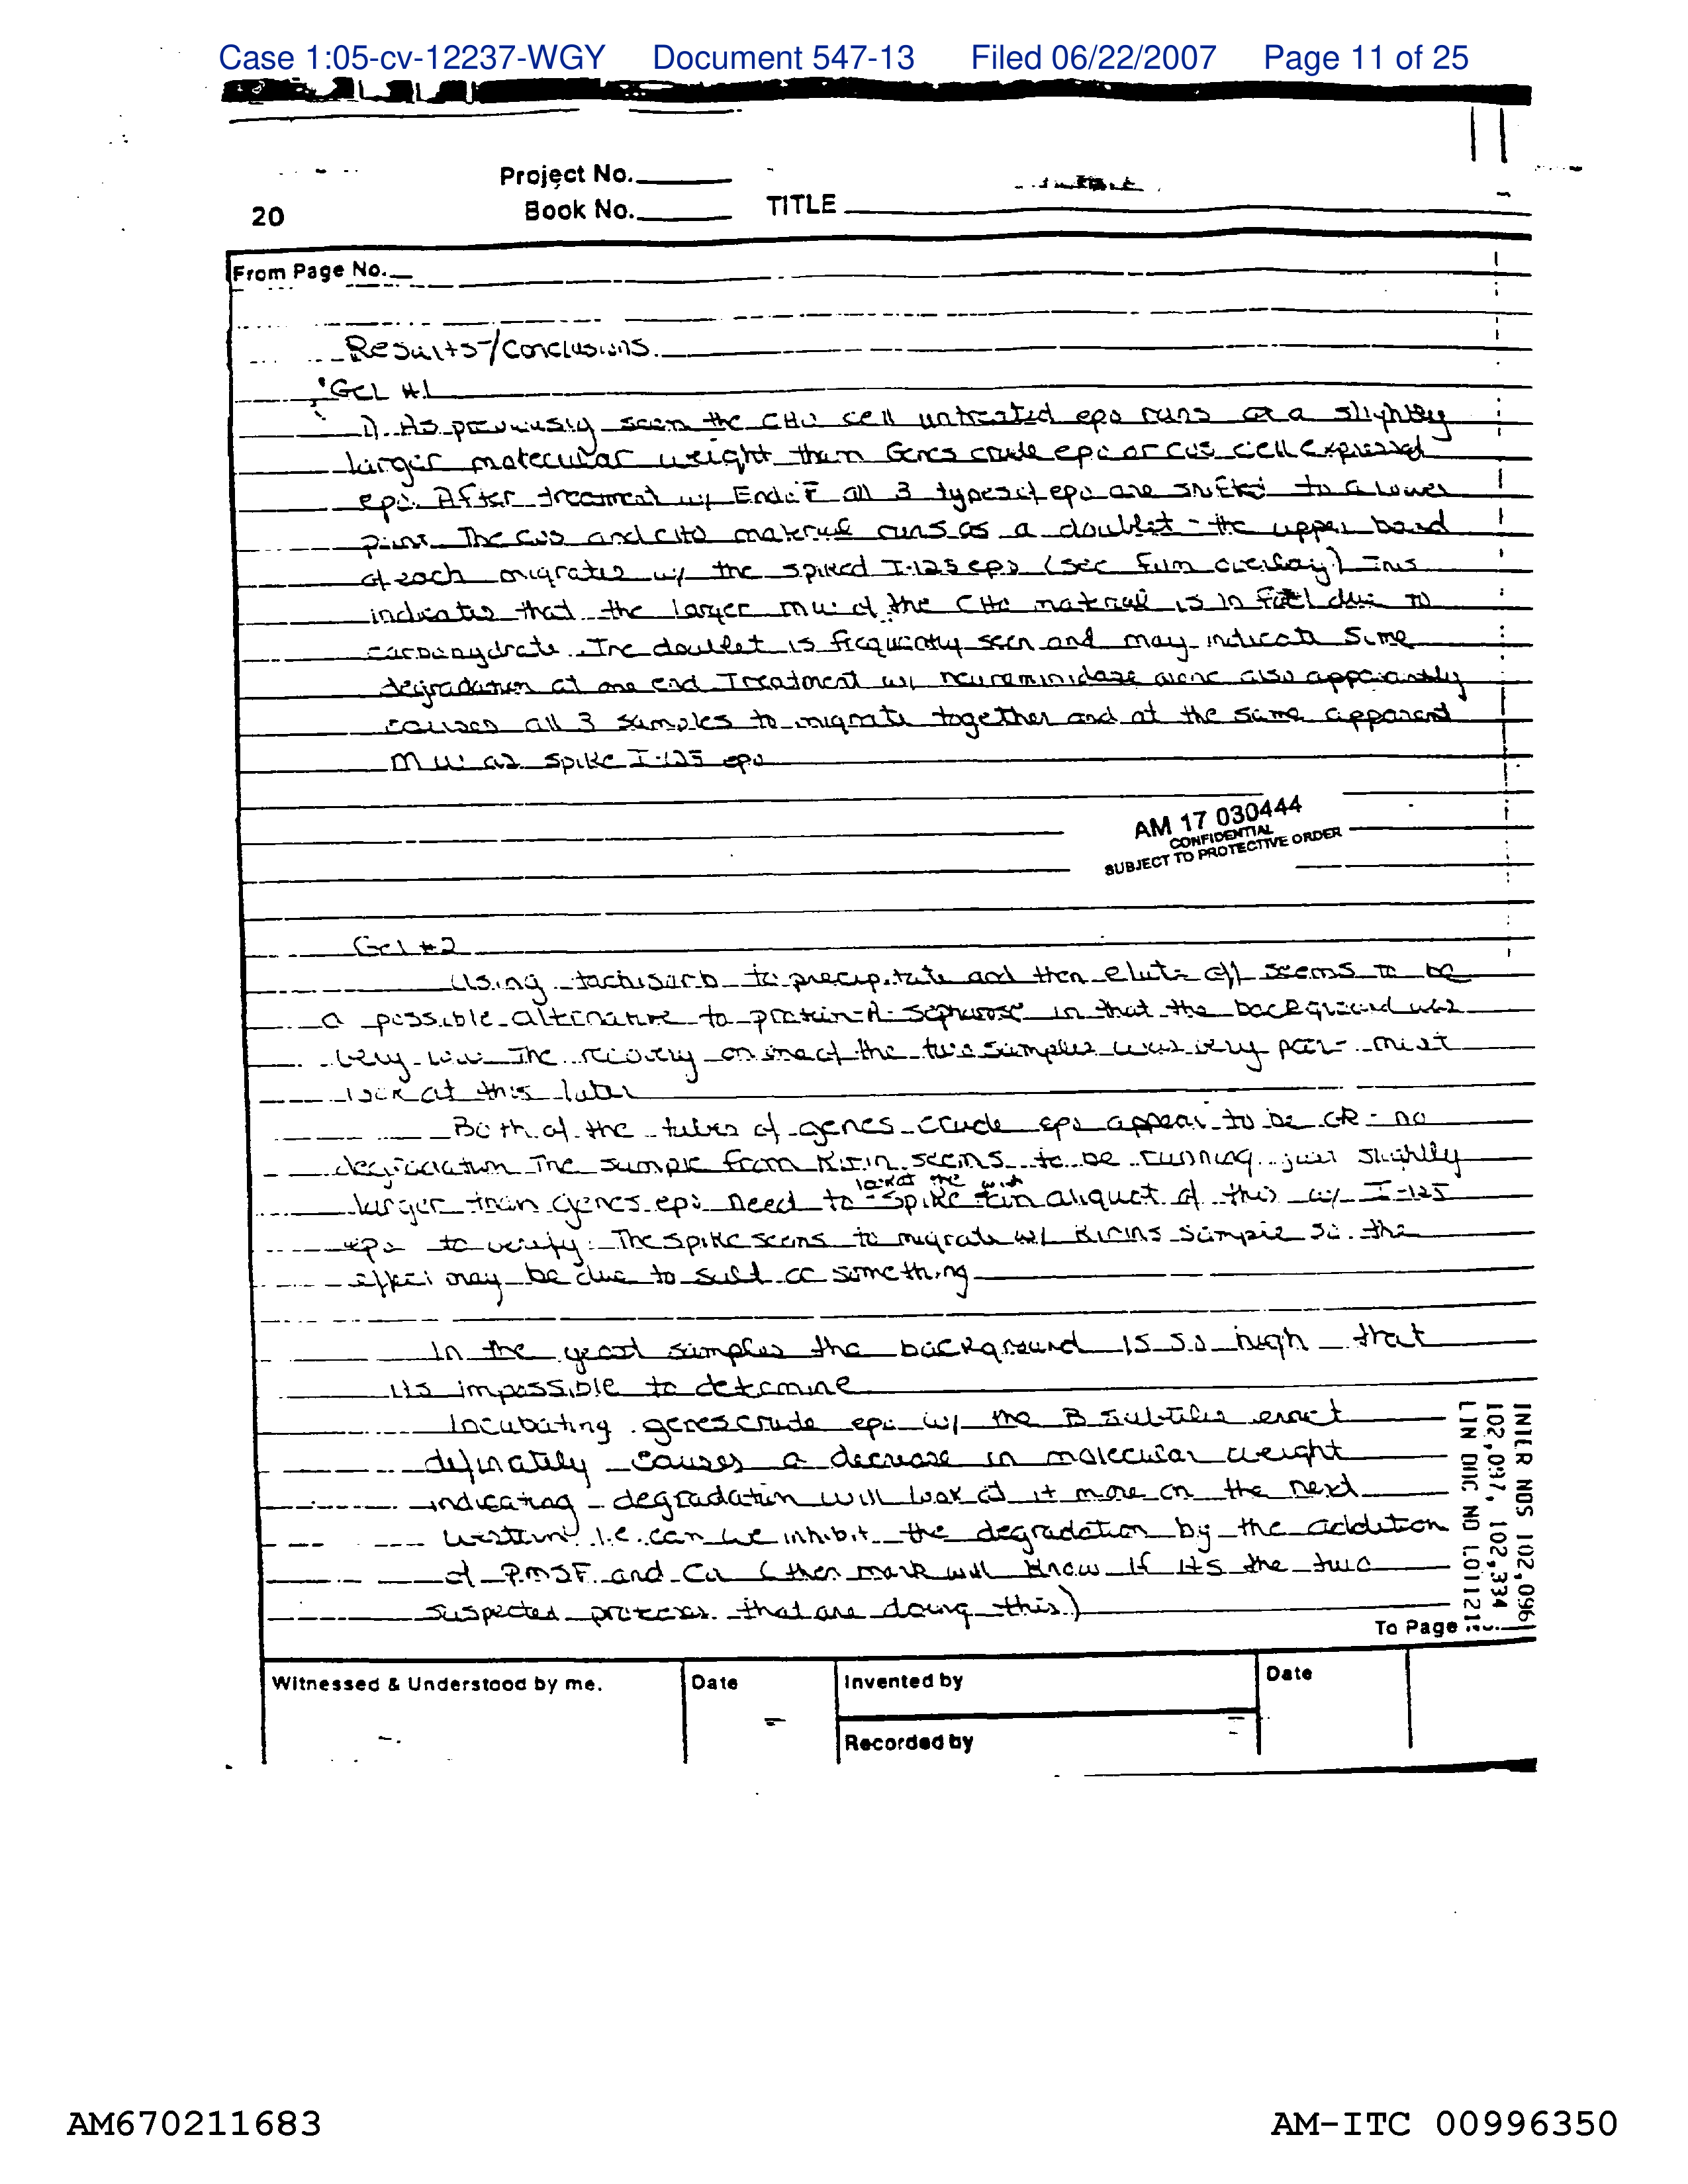 Case 1:05-cv-12237-WGY Document 547-13 Filed 06/22/2007 Page 11 of 25
11
Project No.
20 Book No. TITLE
From Page No.
Results/Conclusions
Gel #1
1) As previously seen the CHO cell untreated epo runs at a slightly
larger molecular weight than Genes crude epo or cos cell expressed
epo. After treatment w/ Endo F all 3 types of epo are shifted to a lower
point. The cos and CHO material runs as a doublet - the upper band
of each migrates w/ the spiked I-125 epo (see film overlay) This
indicates that the larger mw of the CHO material is in fact due to
carbohydrate. The doublet is frequently seen and may indicate some
degradation at one end Treatment w/ neuraminidase alone also apparently
causes all 3 samples to migrate together and at the same apparent
mw as spike I-125 epo
AM 17 030444
CONFIDENTIAL
SUBJECT TO PROTECTIVE ORDER
Gel #2
Using tachisorb to precipitate and then elute off seems to be
a possible alternative to protein-A-sepharose in that the background was
very low The recovery on one of the two samples was very poor - must
look at this later
Both of the tubes of genes crude epo appear to be OK - no
degradation The sample from Kirin seems to be running just slightly
look at the with
larger than genes epo need to spike an aliquot of this w/ I-125
epo to verify. The spike seems to migrate w/ Kirins sample so the
effect may be due to salt or something
In the yeast samples the background is so high that
its impossible to determine
Incubating genes crude epo w/ the B subtilis
definately causes a decrease in molecular weight
indicating degradation will look at it more on the next
western i.e. can we inhibit the degradation by the addition
of PMSF and (then mark will know if its the two
suspected that are doing this)
INTER NOS 102,096
102,097, 102,334
LIN DOC NO L01121
To Page No.
Witnessed & Understood by me. Date Invented by Date
Recorded by
AM670211683 AM-ITC 00996350